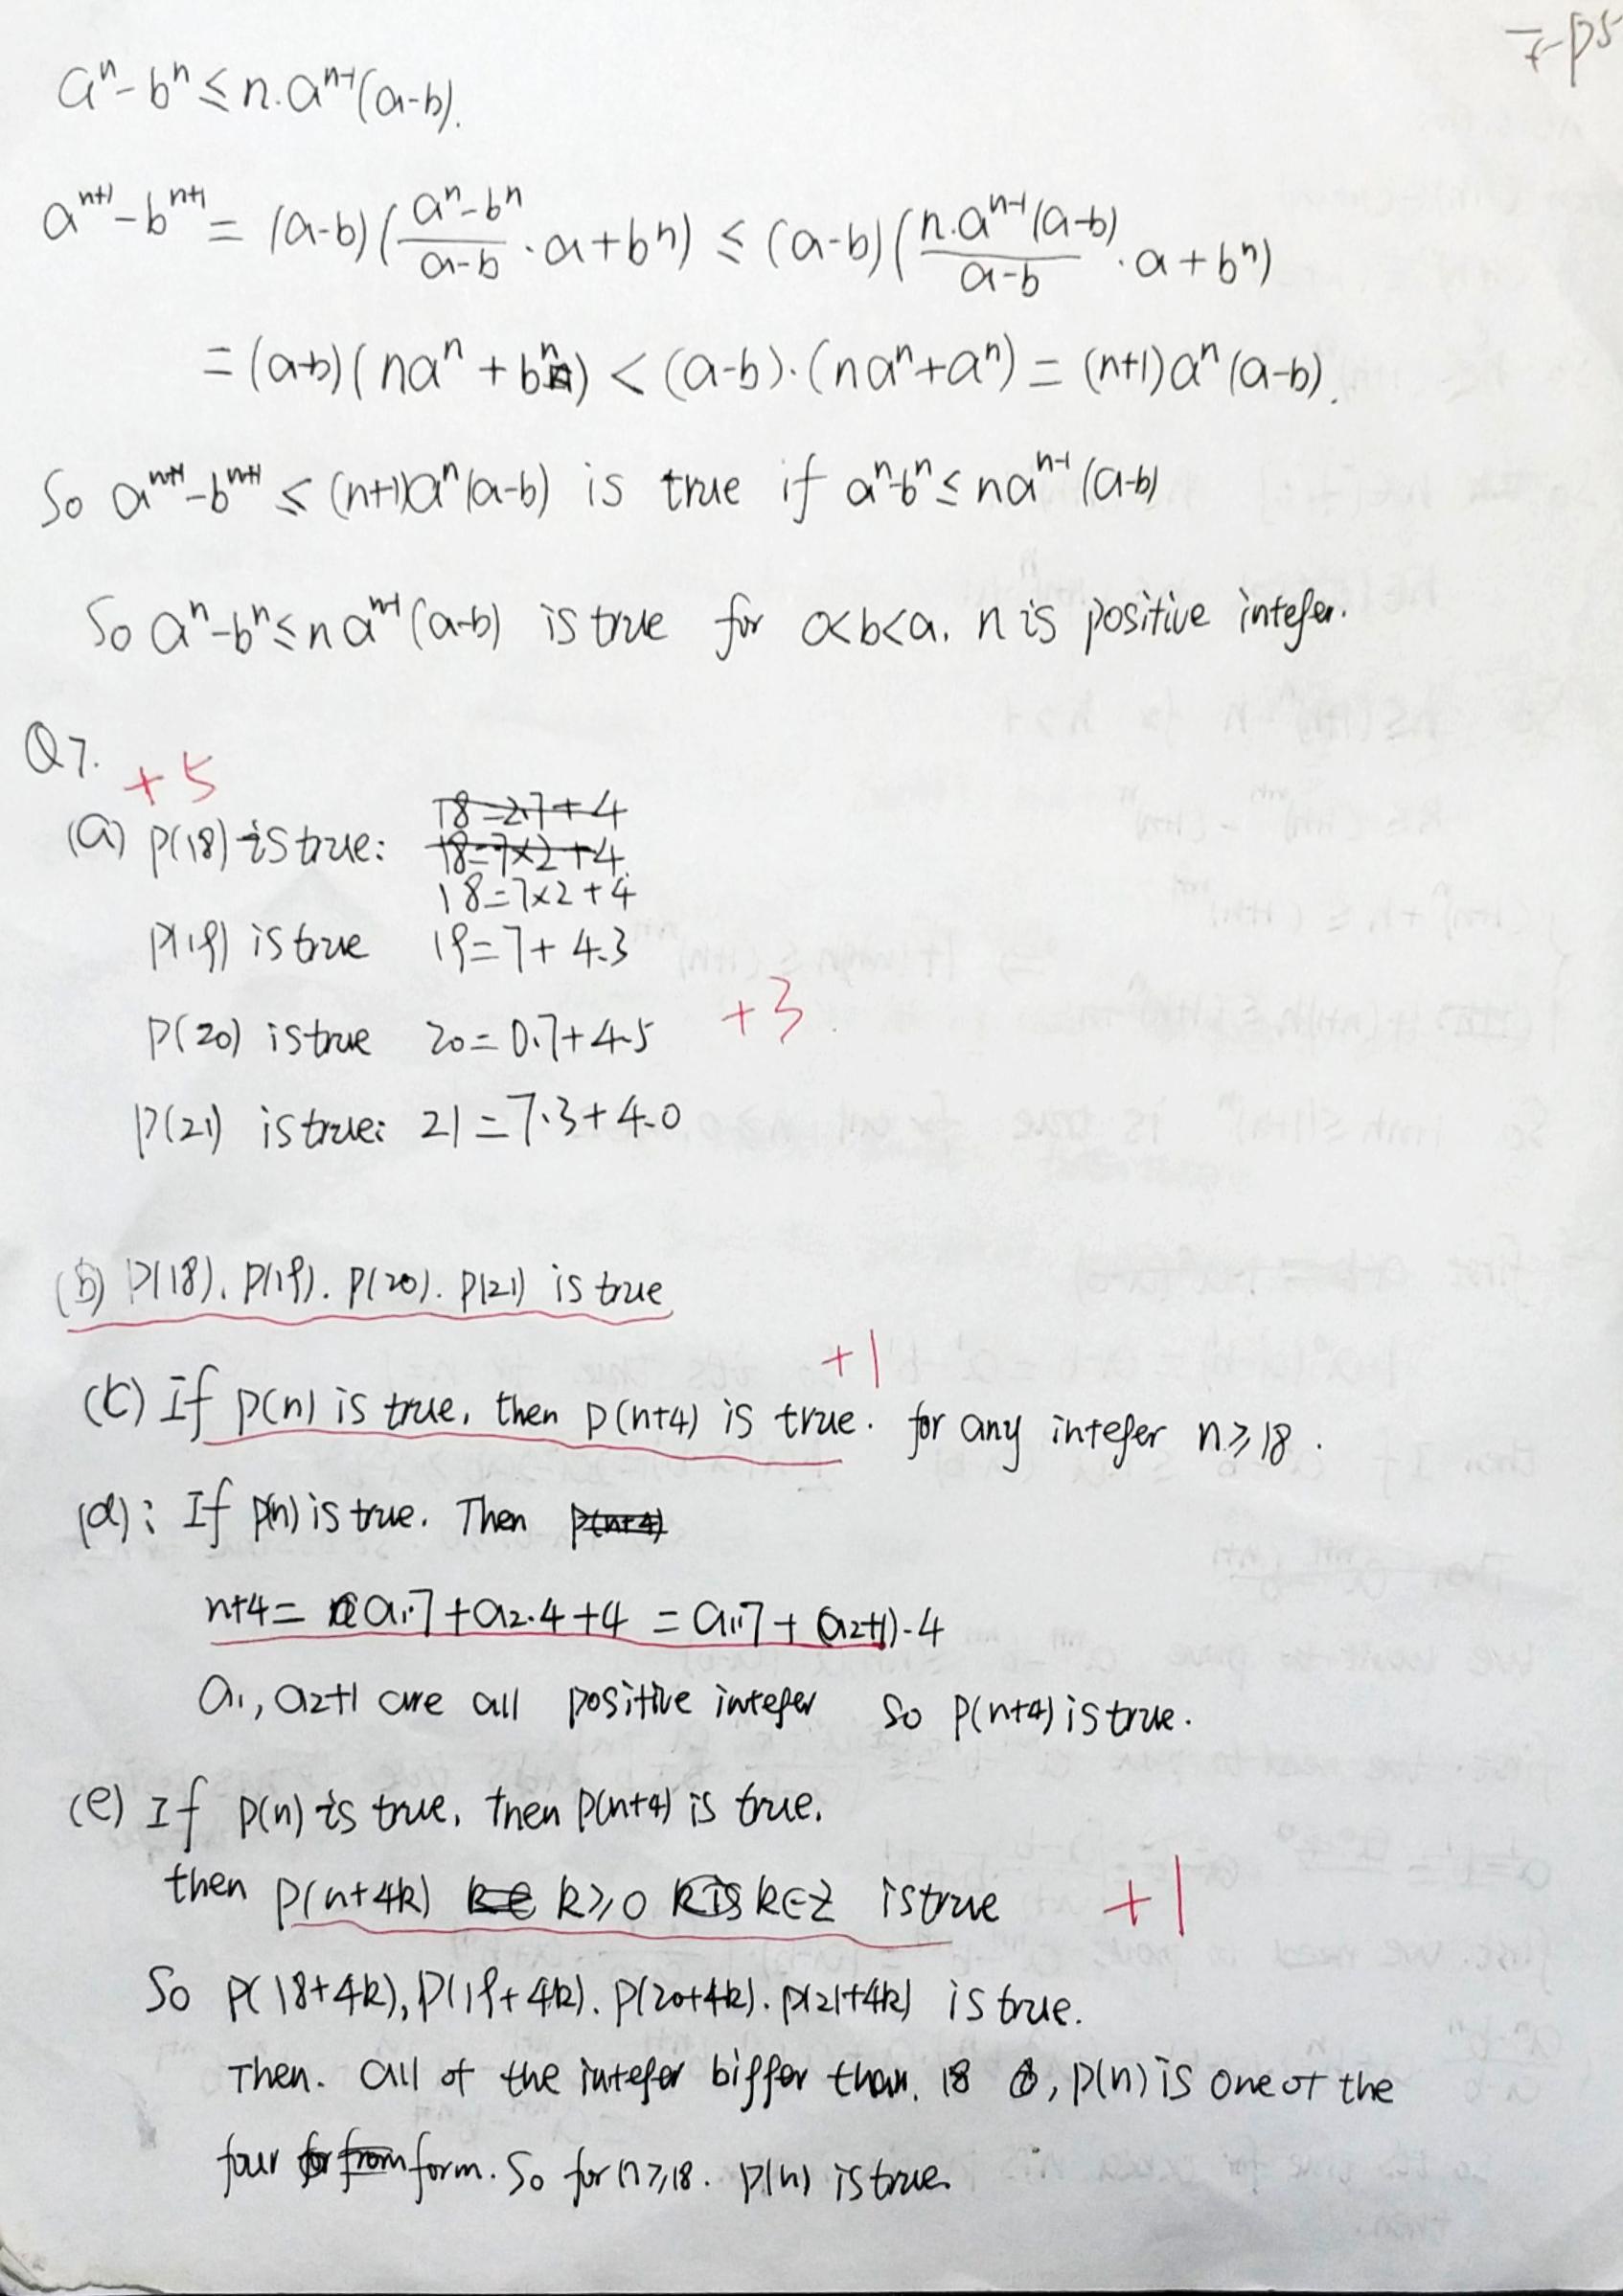 7-p5
aⁿ-bⁿ ≤ n.aⁿ⁻¹(a-b).
aⁿ⁺¹-bⁿ⁺¹ = (a-b)((aⁿ-bⁿ)/(a-b) · a+bⁿ) ≤ (a-b)((n.aⁿ⁻¹(a-b))/(a-b) · a+bⁿ)
= (a-b)(naⁿ + bⁿ) < (a-b)·(naⁿ+aⁿ) = (n+1)aⁿ(a-b).
So aⁿ⁺¹-bⁿ⁺¹ ≤ (n+1)aⁿ(a-b) is true if aⁿ-bⁿ ≤ naⁿ⁻¹(a-b)
So aⁿ-bⁿ ≤ n aⁿ⁻¹(a-b) is true for o<b<a, n is positive integer.
Q7.
+5
18=2.7+4
(a) P(18) is true: 18=7×2+4
18=7×2+4
P(19) is true 19=7+4.3
P(20) is true 20=0.7+4.5 +3
P(21) is true: 21=7.3+4.0
(b) P(18). P(19). P(20). P(21) is true
+1
(c) If P(n) is true, then P(n+4) is true. for any integer n≥18.
(d): If P(n) is true. Then P(n+4)
n+4= a₁·7+a₂·4+4 = a₁·7+(a₂+1)·4
a₁, a₂+1 are all positive integer So P(n+4) is true.
(e) If P(n) is true, then P(n+4) is true.
then P(n+4k) k∈ k≥0 k is k∈Z is true +1
So P(18+4k), P(19+4k). P(20+4k). P(21+4k) is true.
Then. all of the integer bigger than 18, P(n) is one of the
four for from form. So for n≥18. P(n) is true.